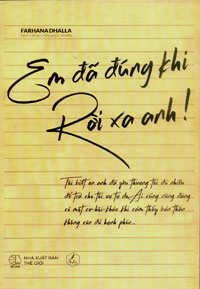 FARHANA DHALLA
Em đã đúng khi
Rời xa anh!
Tôi biết ơn anh đã yêu thương tôi đủ nhiều
để trả cho tôi sự tự do. Ai cũng xứng đáng
có một cơ hội khác khi cảm thấy bản thân
không còn đủ hạnh phúc...
NHÀ XUẤT BẢN
THẾ GIỚI